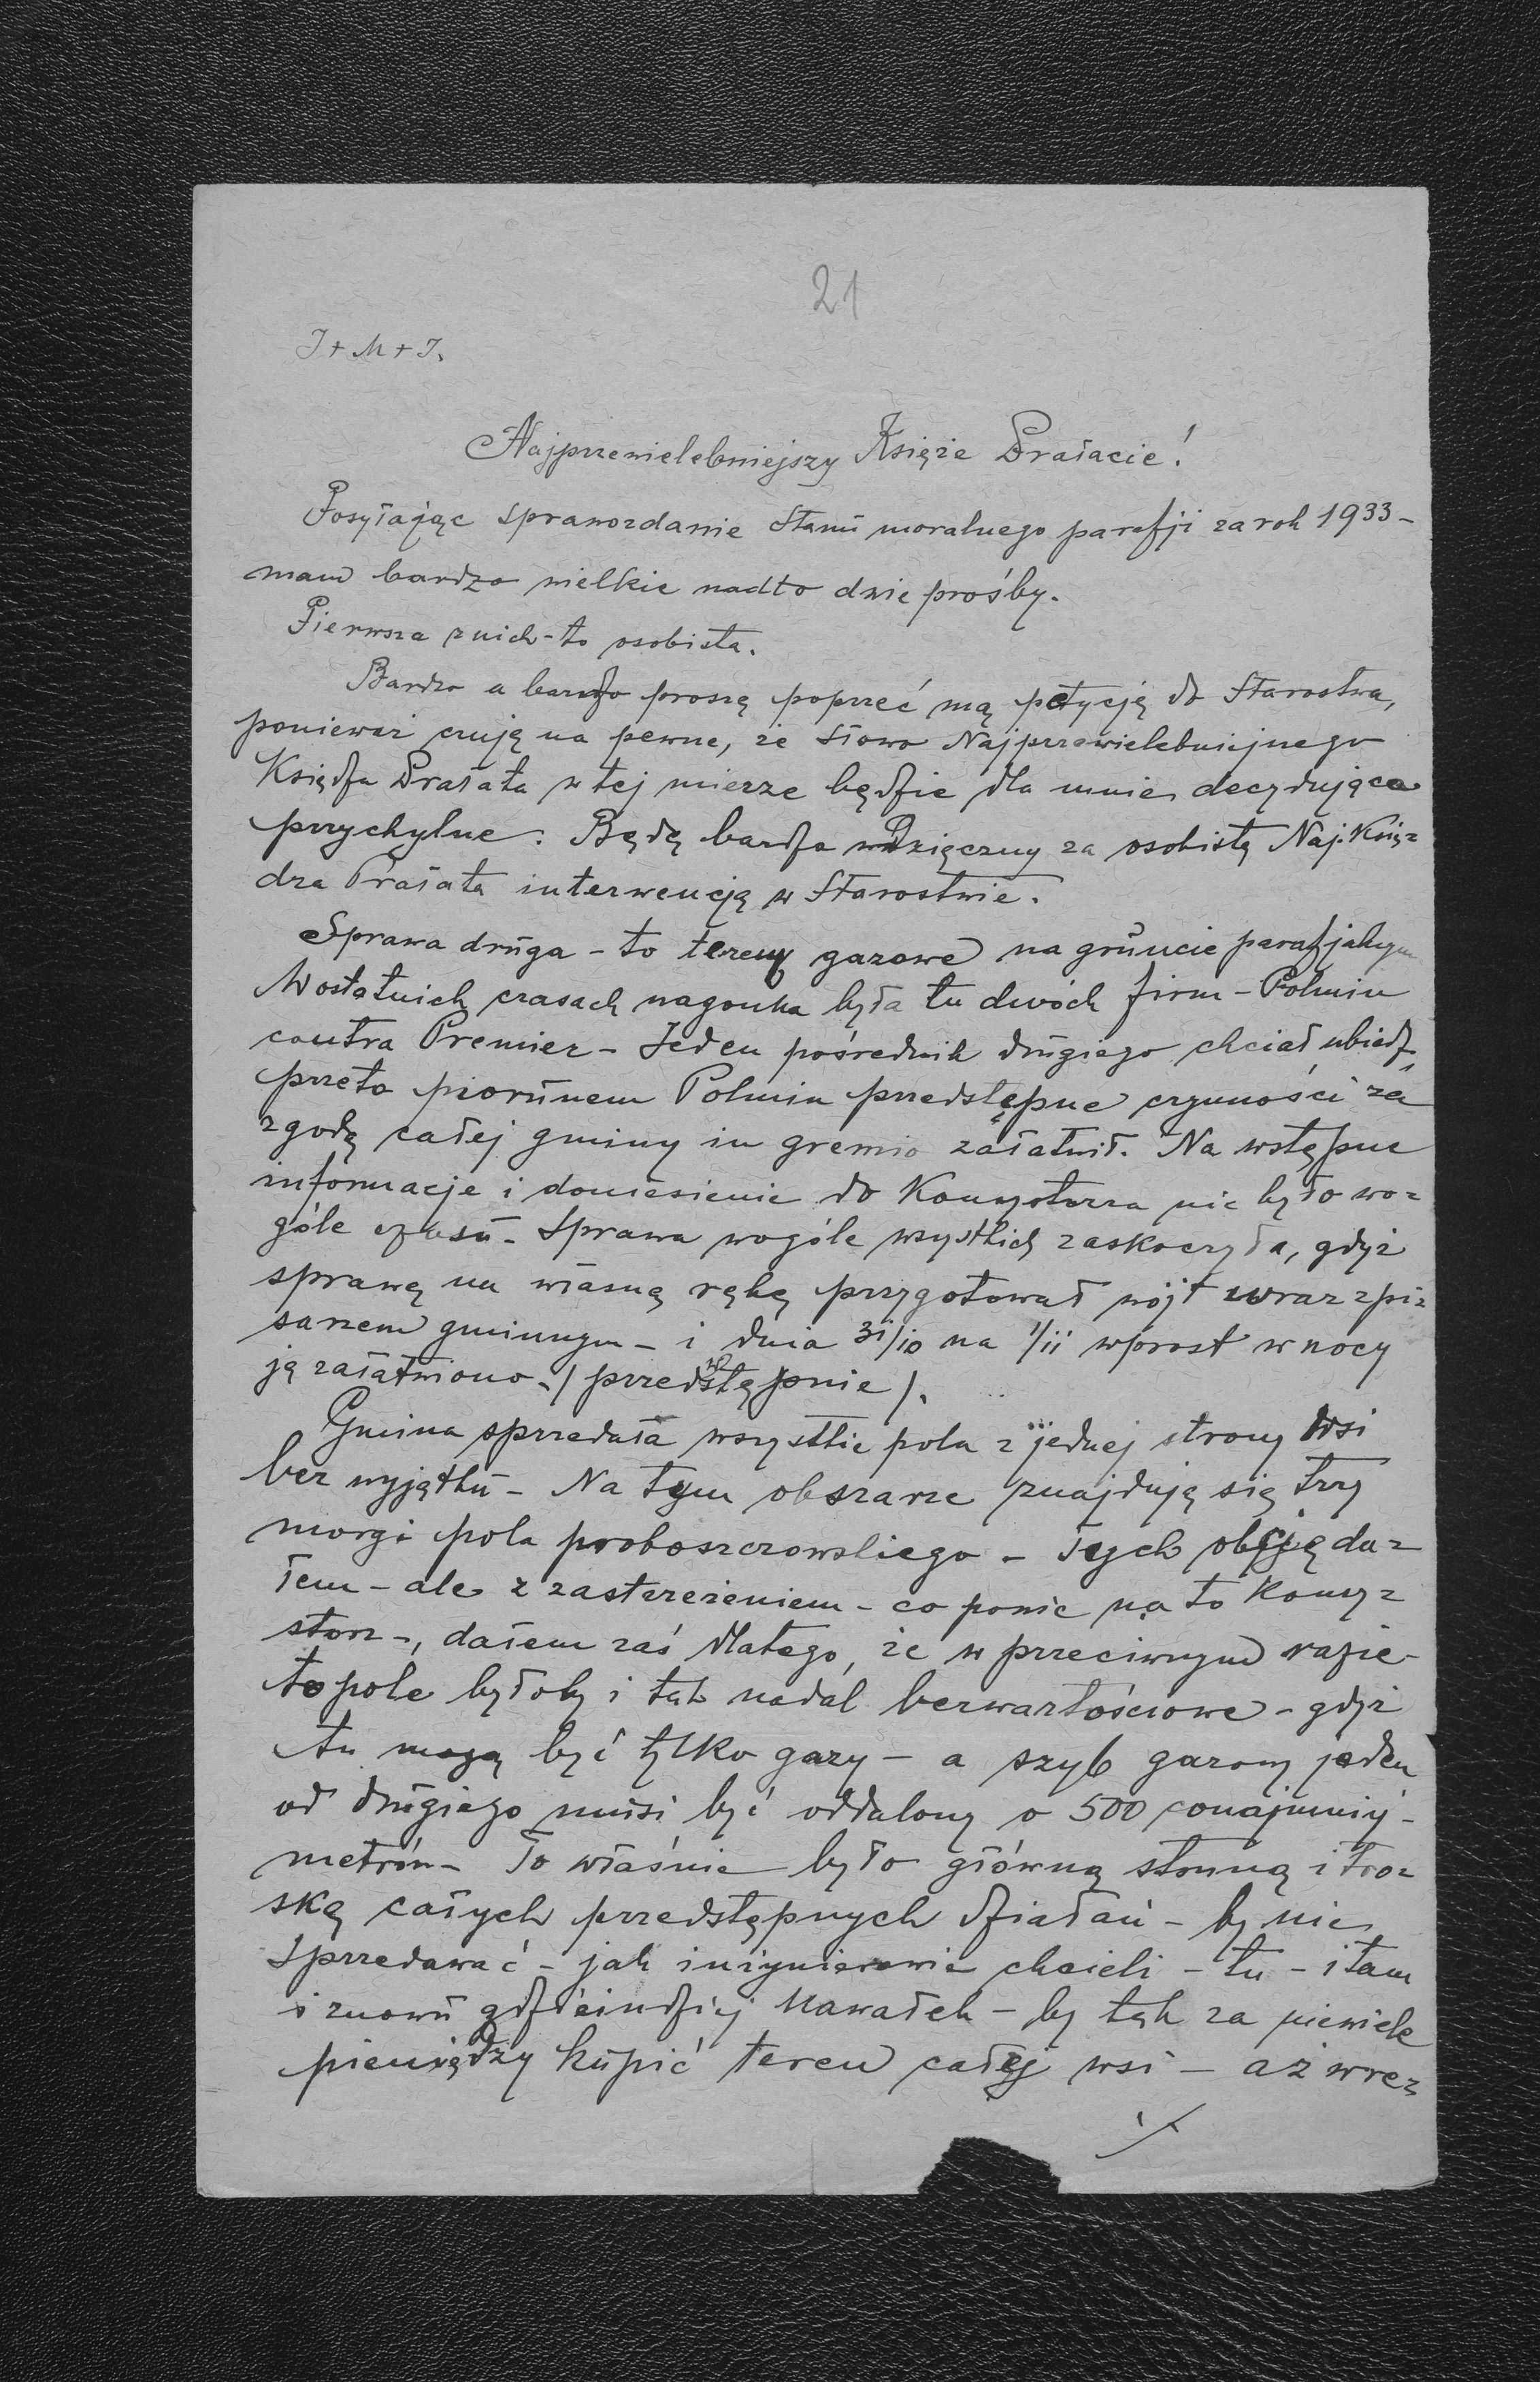 21
J + M + J.
Najprzewielebniejszy Księże Prałacie!
Posyłając sprawozdanie stanu moralnego parafji za rok 1933 -
mam bardzo wielkie nadto dwie prośby.
Pierwsza z nich - to osobista.
Bardzo a bardzo proszę poprzeć mą petycję do Starostwa,
ponieważ czuję na pewne, że słowo Najprzewielebniejnego
Księdza Prałata w tej mierze będzie dla mnie decydująco
przychylne. Będę bardzo wdzięczny za osobistą Naj. Księ=
dza Prałata interwencją w Starostwie.
Sprawa druga - to tereny gazowe na gruncie parafjalnym
W ostatnich czasach nagonka była tu dwóch firm - Polmin
contra Premier - Jeden pośrednik drugiego chciał ubiedz,
przeto piorunem Polmin przedstępne czynności za
zgodą całej gminy in gremio załatwił. Na wstępne
informacje i doniesienie do Konsystorza nie było wo=
góle czasu - Sprawa wogóle wszystkich zaskoczyła, gdyż
sprawę na własną rękę przygotował wójt wraz z pi=
sarzem gminnym - i dnia 31/10 na 1/11 wprost w nocy
ją załatwiono - / przedwstępnie /.
Gmina sprzedała wszystkie pola z jednej strony wsi
bez wyjątku - Na tym obszarze znajdują się trzy
morgi pola proboszczowskiego - Tych opcję da=
łem - ale z zastrzeżeniem - co powie na to Konsy=
storz -, dałem zaś dlatego, że w przeciwnym razie -
to pole byłoby i tak nadal bezwartościowe - gdyż
tu mogą być tylko gazy - a szyb gazowy jeden
od drugiego musi być oddalony o 500 conajmniej -
metrów - To właśnie było główną stroną i tro=
ską całych przedstępnych działań - by nie
sprzedawać - jak inżynierowie chcieli - tu - i tam
i znowu gdzieindziej kawałek - by tak za niewiele
pieniędzy kupić teren całej wsi - aż wresz